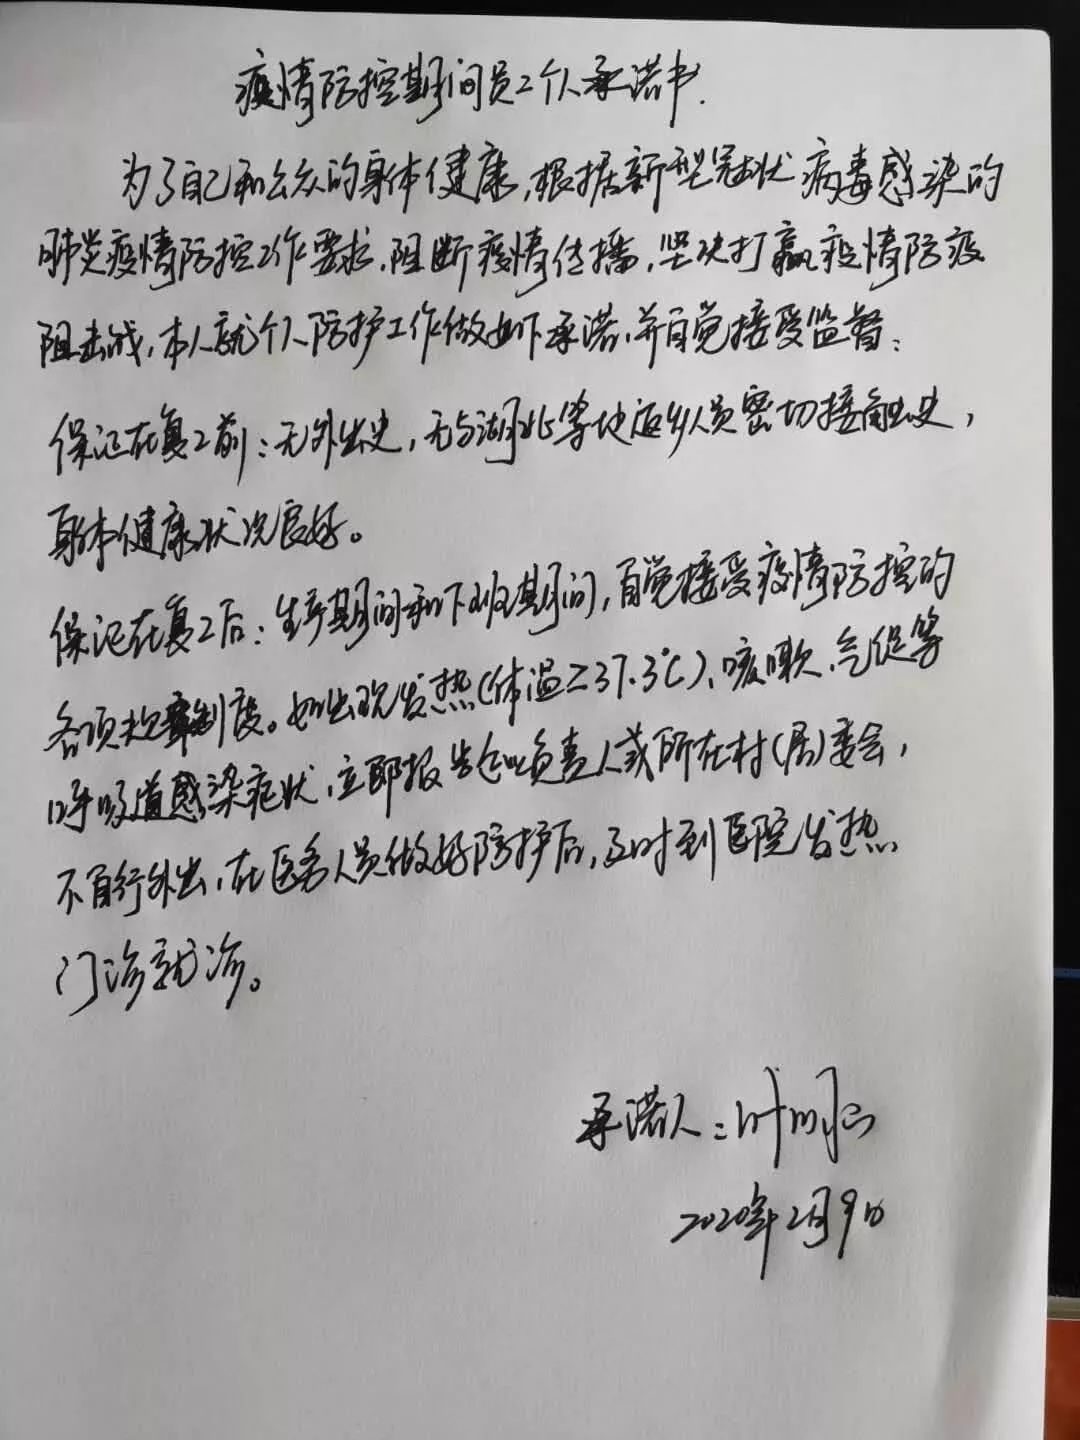 疫情防控期间员工个人承诺书.
为了自己和公众的身体健康,根据新型冠状病毒感染的
肺炎疫情防控工作要求,阻断疫情传播,坚决打赢疫情防疫
阻击战,本人就个人防护工作做如下承诺,并自觉接受监督:
保证在复工前:无外出史,无与湖北等地返乡人员密切接触史,
身体健康状况良好。
保证在复工后:生产期间和下班期间,自觉接受疫情防控的
各项规章制度。如出现发热(体温≥37.3℃)、咳嗽、气促等
呼吸道感染症状,立即报告企业负责人或所在村(居)委会,
不自行外出,在医务人员做好防护后,及时到医院发热
门诊就诊。
承诺人:叶
2020年2月9日